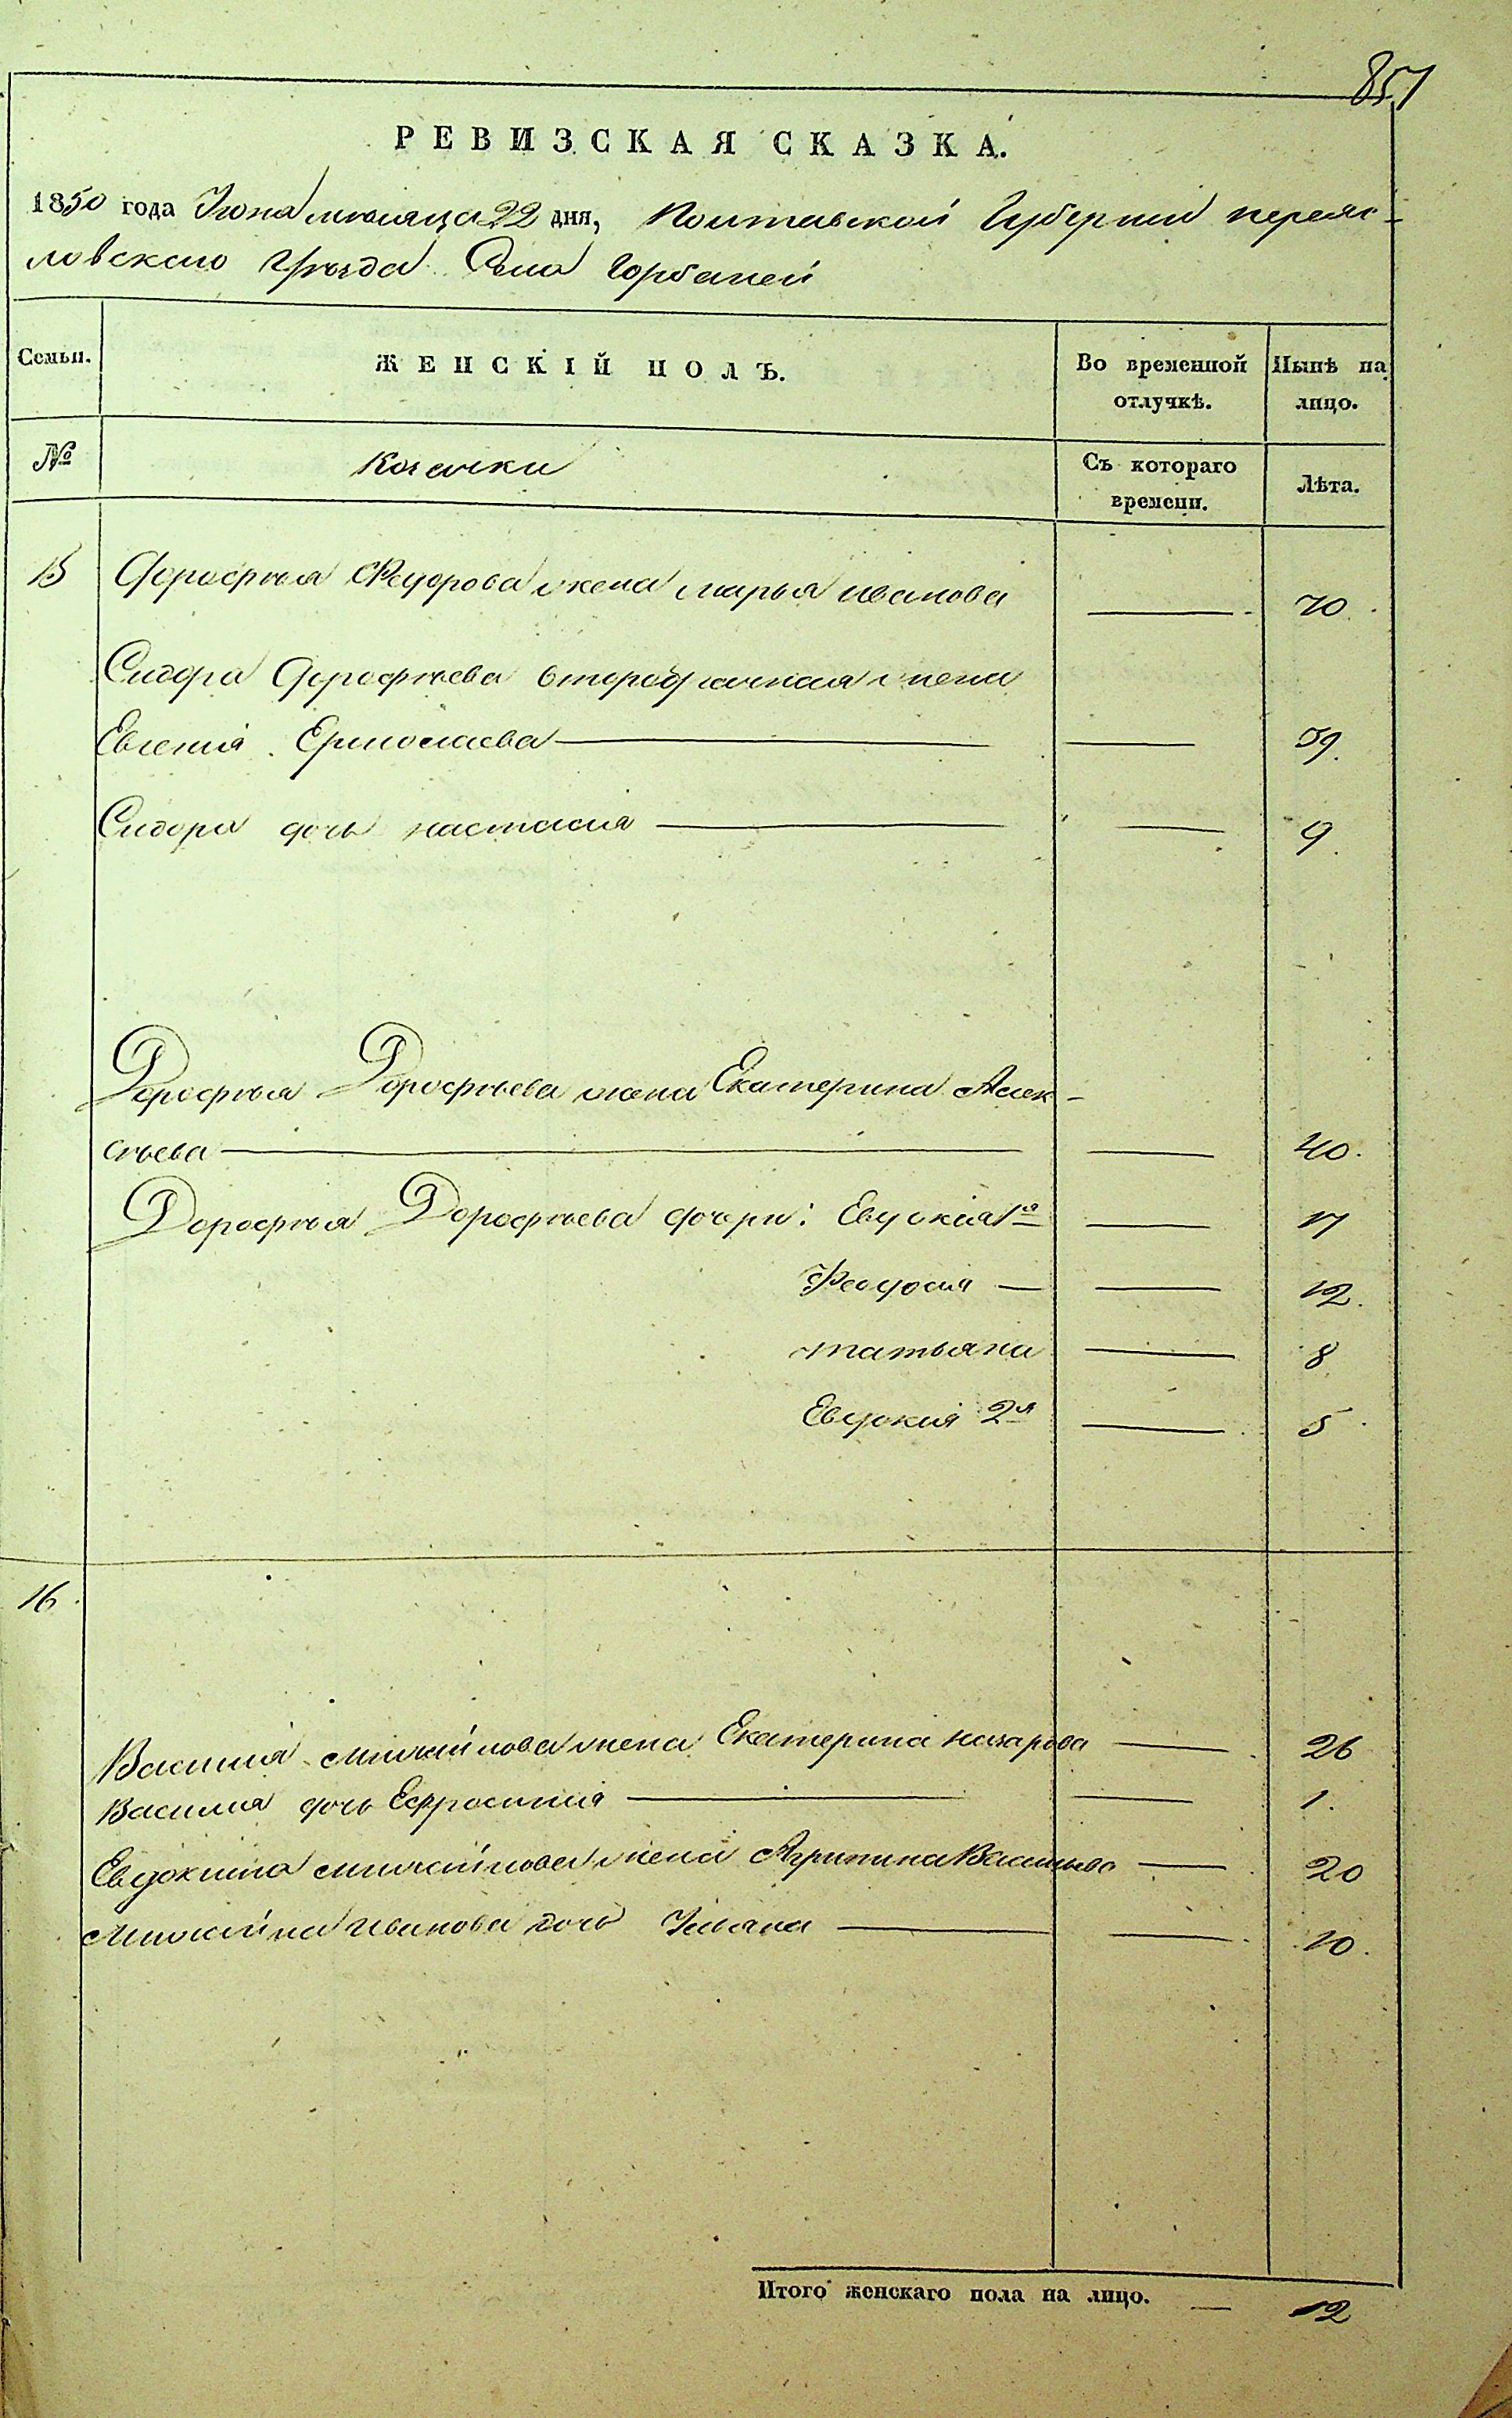 857
РЕВИЗСКАЯ СКАЗКА.
1850 года Июня месяца 22 дня, Полтавской Губернии переяс-
ловского уезда Села Горбаней
Семьи.
ЖЕНСКІЙ ПОЛЪ.
Во временной отлучкѣ.
Нынѣ на лицо.
№
Козачки
Съ котораго времени.
Лѣта.
15 Дорофѣя Федорова жена марья иванова — 70.
Сидора Дорофѣева втородрачная жена
Евгенія Ермолаева — 39.
Сидора дочь настасія — 9.
Дорофѣя Дорофѣева жена Екатерина Алек-
сѣева — 40.
Дорофѣя Дорофѣева дочери: Евдокія 1я — 17
Феодосія — 12.
татьяна — 8
Евдокія 2я — 5
16.
Василія михайлова жена Екатерина назарова — 26
Василія дочь Ефросинія — 1.
Евдокима михайлова жена Агрипина Васильева — 20
михайла иванова дочь Ульяна — 10.
Итого женскаго пола на лицо. — 12